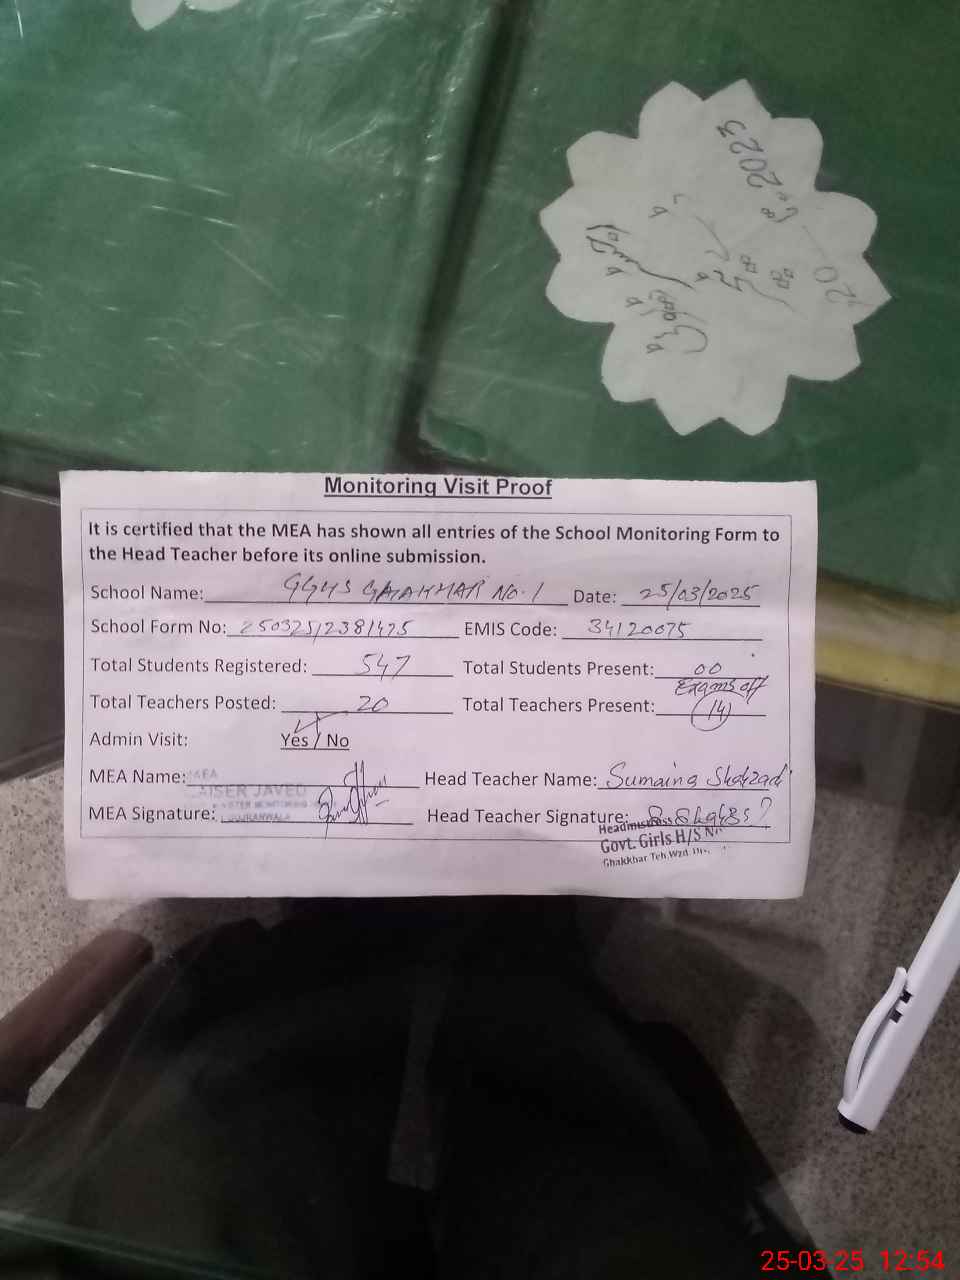 2023
20
Monitoring Visit Proof
It is certified that the MEA has shown all entries of the School Monitoring Form to
the Head Teacher before its online submission.
School Name: GGHS GAKKHAR No. 1 Date: 25/03/2025
School Form No: 250325/2381425 EMIS Code: 34120075
Total Students Registered: 547 Total Students Present: 00
Exams off
Total Teachers Posted: 20 Total Teachers Present: (14)
Admin Visit: Yes / No
MEA Name: MEA Head Teacher Name: Sumaina Shahzadi
JAVED
MEA Signature: Head Teacher Signature:
GUJRANWALA
Headmistress
Govt. Girls H/S No
Ghakkhar Teh. Wzd
25-03-25 12:54